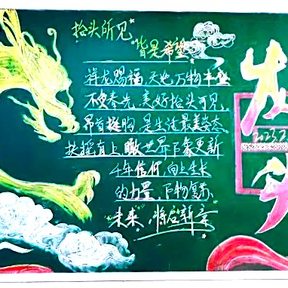 抬头所见"
皆是希望
祥龙赐福 天地万物
不负春光 美好抬头可见
昂首挺胸 是生活最美姿态
扶摇直上 瞰世界万象更新
向上生长
的力量 万物复苏
未来, 将启新章
龙
2023.2
头